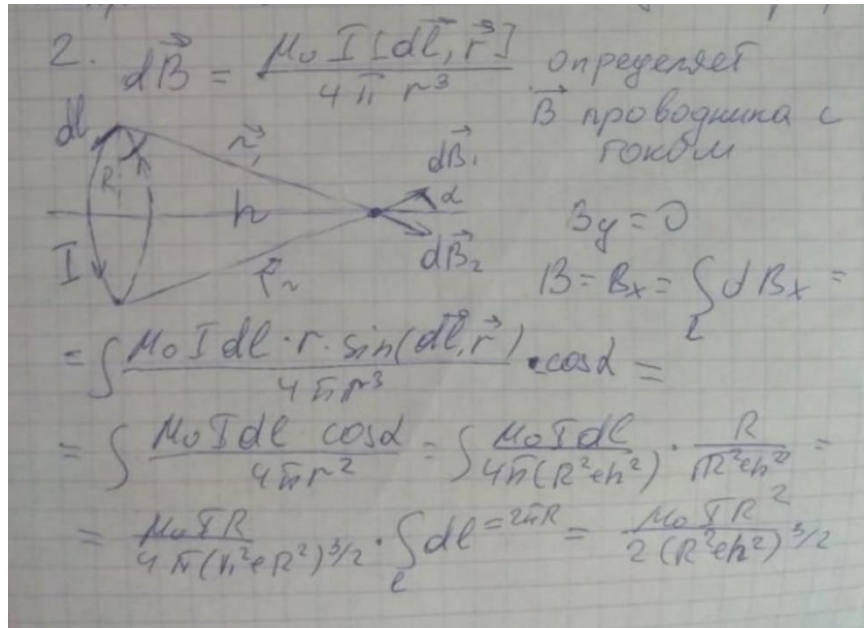 2. dB⃗ = μ₀ I [dl⃗, r⃗] / 4π r³ определяет
B⃗ проводника с
током
dl r⃗₁ dB⃗₁
R h α
I r⃗₂ dB⃗₂
By = 0
B = Bx = ∫_L dBx =
= ∫ μ₀ I dl · r · sin(dl⃗, r⃗) / 4πr³ · cosα =
= ∫ μ₀ I dl cosα / 4πr² = ∫ μ₀ I dl / 4π(R²+h²) · R / √R²+h² =
= μ₀ I R / 4π(h²+R²)^3/2 · ∫_l dl = 2πR = μ₀ I R² / 2(R²+h²)^3/2